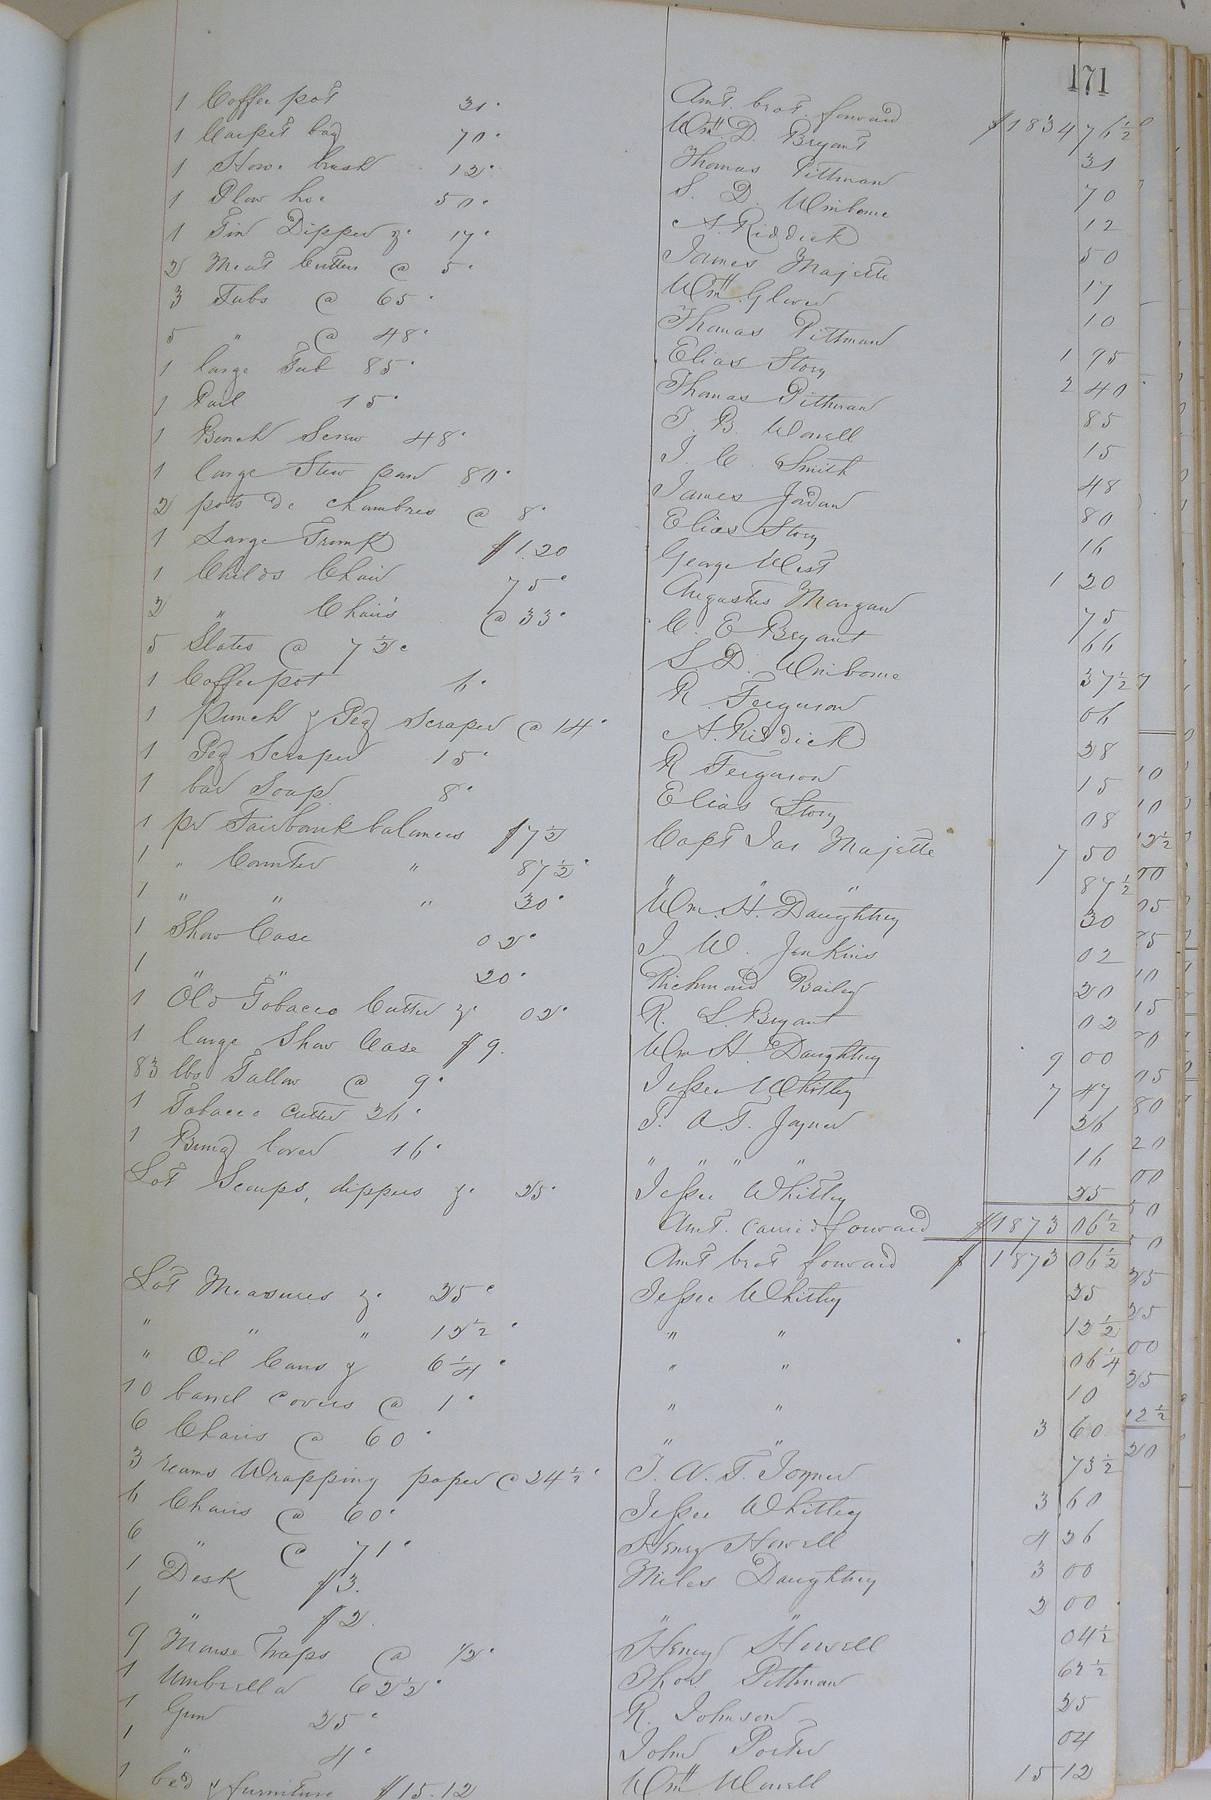 171
Amt. brot. forward $1834 76½
1 Coffee pot 31c Wm. D. Bryant 31
1 Carpet bag 70c Thomas Pittman 70
1 Horse brush 12c S. D. Winborne 12
1 Plow hoe 50c A. Riddick 50
1 Tin Dipper &c 17c James Majette 17
2 Meat Cutters @ 5c Wm. Glover 10
3 Tubs @ 65c Thomas Pittman 1 95
5 " @ 48c Elias Story 2 40
1 large Tub 85c Thomas Pittman 85
1 Pail 15c T. B. Worrell 15
1 Bench Screw 48c J. C. Smith 48
1 large Stew pan 80c James Jordan 80
2 pots de chambres @ 8c Elias Story 16
1 Large Trunk $1.20 George West 1 20
1 Childs Chair 75c Augustus Morgan 75
2 " Chairs @ 33c C. E Bryant 66
5 Slates @ 7½c S. D. Winborne 37½
1 Coffee pot 6c R Ferguson 06
1 Punch & Peg Scraper @ 14c A. Riddick 28
1 Peg Scraper 15c R Ferguson 15
1 bar Soap 8c Elias Story 08
1 pr Fairbank balances $7½ Capt Jas Majette 7 50
1 " Counter " 87½c " " " 87½
1 " " " 30c Wm. H. Daughtrey 30
1 Show Case 02c J W. Jenkins 02
1 " " 20c Richmond Bailey 20
1 Old Tobacco Cutter &c 02c R. L. Bryant 02
1 large Show Case $9. Wm H. Daughtrey 9 00
83 lbs Tallow @ 9c Jessee Whitley 7 47
1 Tobacco cutter 36c T. A. T. Joyner 36
1 Bung borer 16c " " " " 16
Lot Scoups, dippers &c 25c Jessee Whitley 25
Amt. carried forward $1873 06½
Amt brot forward $1873 06½
Lot Measures &c 25c Jessee Whitley 25
" " " 12½c " " 12½
" Oil Cans & 6¼c " " 06¼
10 barrel covers @ 1c " " 10
6 Chairs @ 60c " " 3 60
3 reams Wrapping paper @ 24½c T. A. T. Joyner 73½
6 Chairs @ 60c Jessee Whitley 3 60
6 " @ 71c Henry Howell 4 26
1 Desk $3. Miles Daughtrey 3 00
1 " $2. " " 2 00
9 Mouse Traps @ ½c Henry Howell 04½
1 Umbrella 62½c Thos. Pittman 62½
1 Gun 25c R. Johnson 25
1 " 4c John Porter 04
1 bed & furniture $15.12 Wm Worrell 15 12